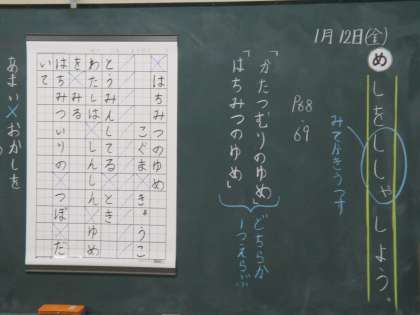 1月12日(金)
め
しをししゃしよう。
みてかきうつす
P68
・69
「かたつむりのゆめ」
「はちみつのゆめ」
どちらか
1つえらぶ
はちみつのゆめ
こぐま きょうこ
とうみんしてる とき
わたしは しんしん ゆめ
をみる
はちみついりの つぼ だ
いて
あまい×おかしを